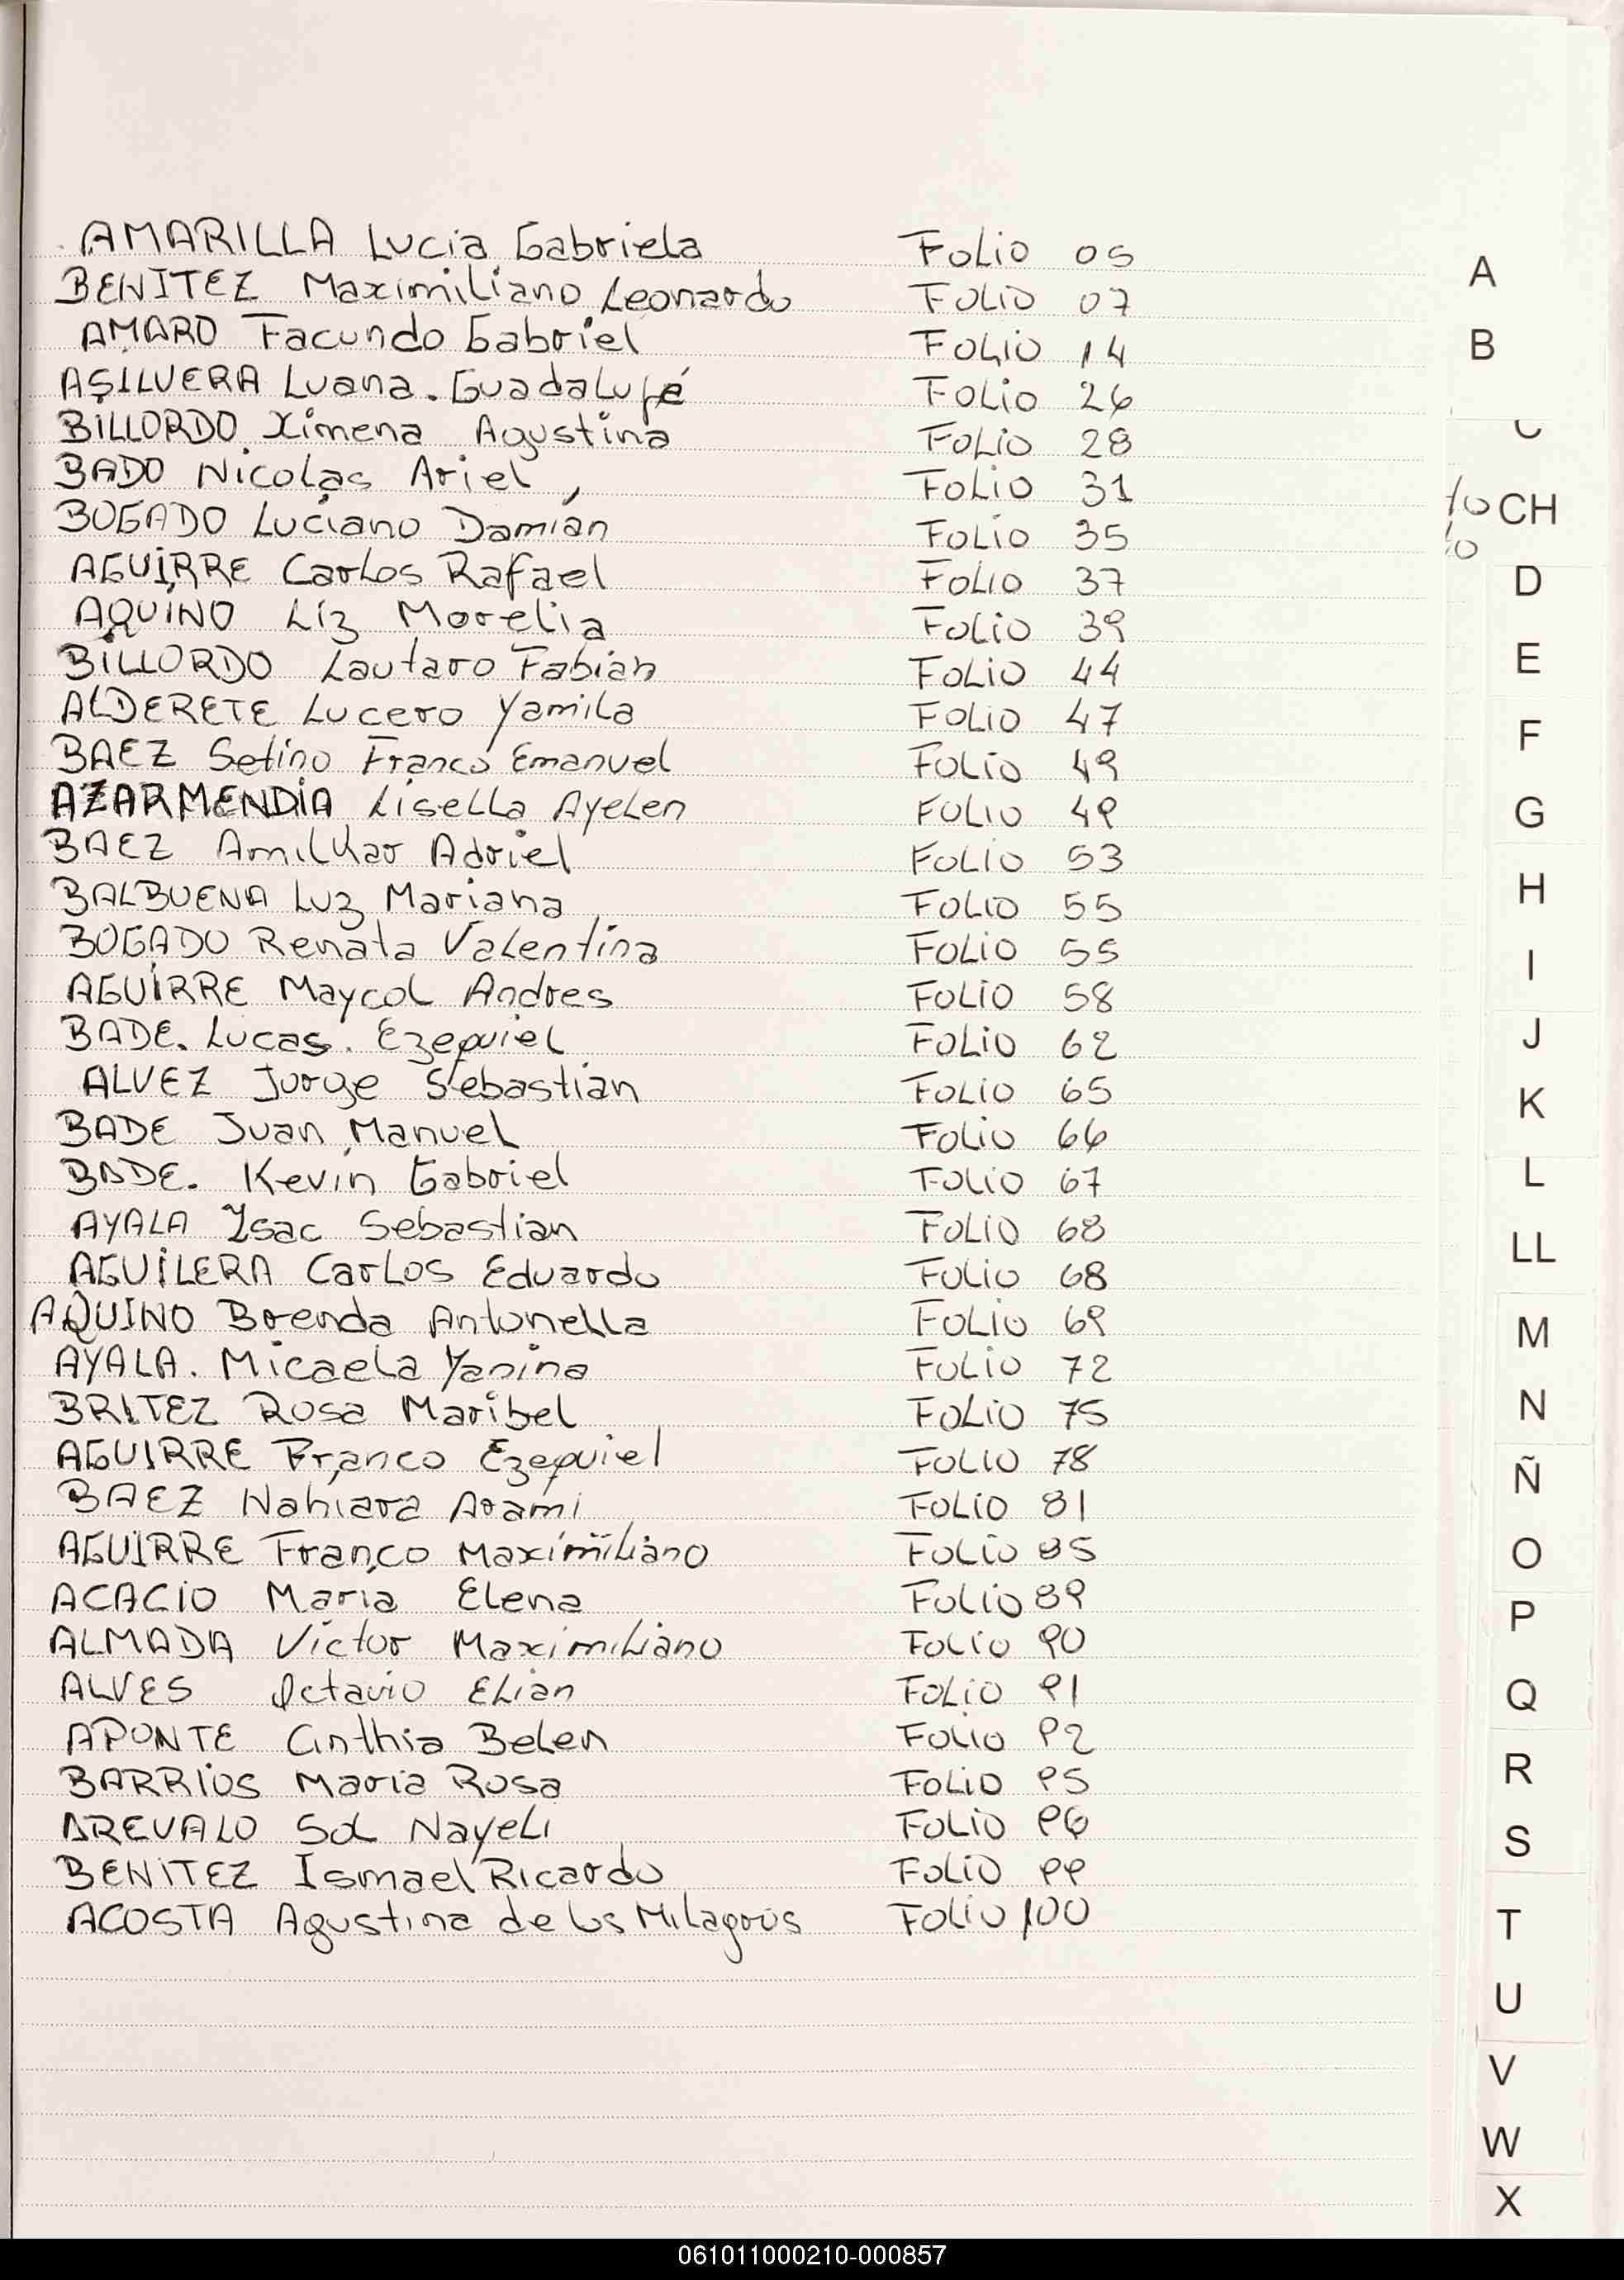 AMARILLA Lucia Gabriela Folio 05
BENITEZ Maximiliano Leonardo Folio 07
AMARO Facundo Gabriel Folio 14
ASILVERA Luana. Guadalupé Folio 26
BILLORDO Ximena Agustina Folio 28
BADO Nicolas Ariel Folio 31
BOGADO Luciano Damián Folio 35
AGUIRRE Carlos Rafael Folio 37
AQUINO Liz Morelia Folio 39
BILLORDO Lautaro Fabian Folio 44
ALDERETE Lucero Yamila Folio 47
BAEZ Franco Emanuel Folio 49
AZARMENDIA Lisella Ayelen Folio 49
BAEZ Amilkar Adriel Folio 53
BALBUENA Luz Mariana Folio 55
BOGADO Renata Valentina Folio 55
AGUIRRE Maycol Andres Folio 58
BADE. Lucas. Ezequiel Folio 62
ALVEZ Jorge Sebastian Folio 65
BADE Juan Manuel Folio 66
BADE. Kevin Gabriel Folio 67
AYALA Isac Sebastian Folio 68
AGUILERA Carlos Eduardo Folio 68
AQUINO Brenda Antonella Folio 69
AYALA. Micaela Yanina Folio 72
BRITEZ Rosa Maribel Folio 75
AGUIRRE Franco Ezequiel Folio 78
BAEZ Nahiara Arami Folio 81
AGUIRRE Franco Maximiliano Folio 85
ACACIO Maria Elena Folio 89
ALMADA Victor Maximiliano Folio 90
ALVES Octavio Elian Folio 91
APONTE Cinthia Belen Folio 92
BARRIOS Maria Rosa Folio 95
AREVALO Sol Nayeli Folio 96
BENITEZ Ismael Ricardo Folio 99
ACOSTA Agustina de los Milagros Folio 100
A
B
C
CH
D
E
F
G
H
I
J
K
L
LL
M
N
Ñ
O
P
Q
R
S
T
U
V
W
X
061011000210-000857